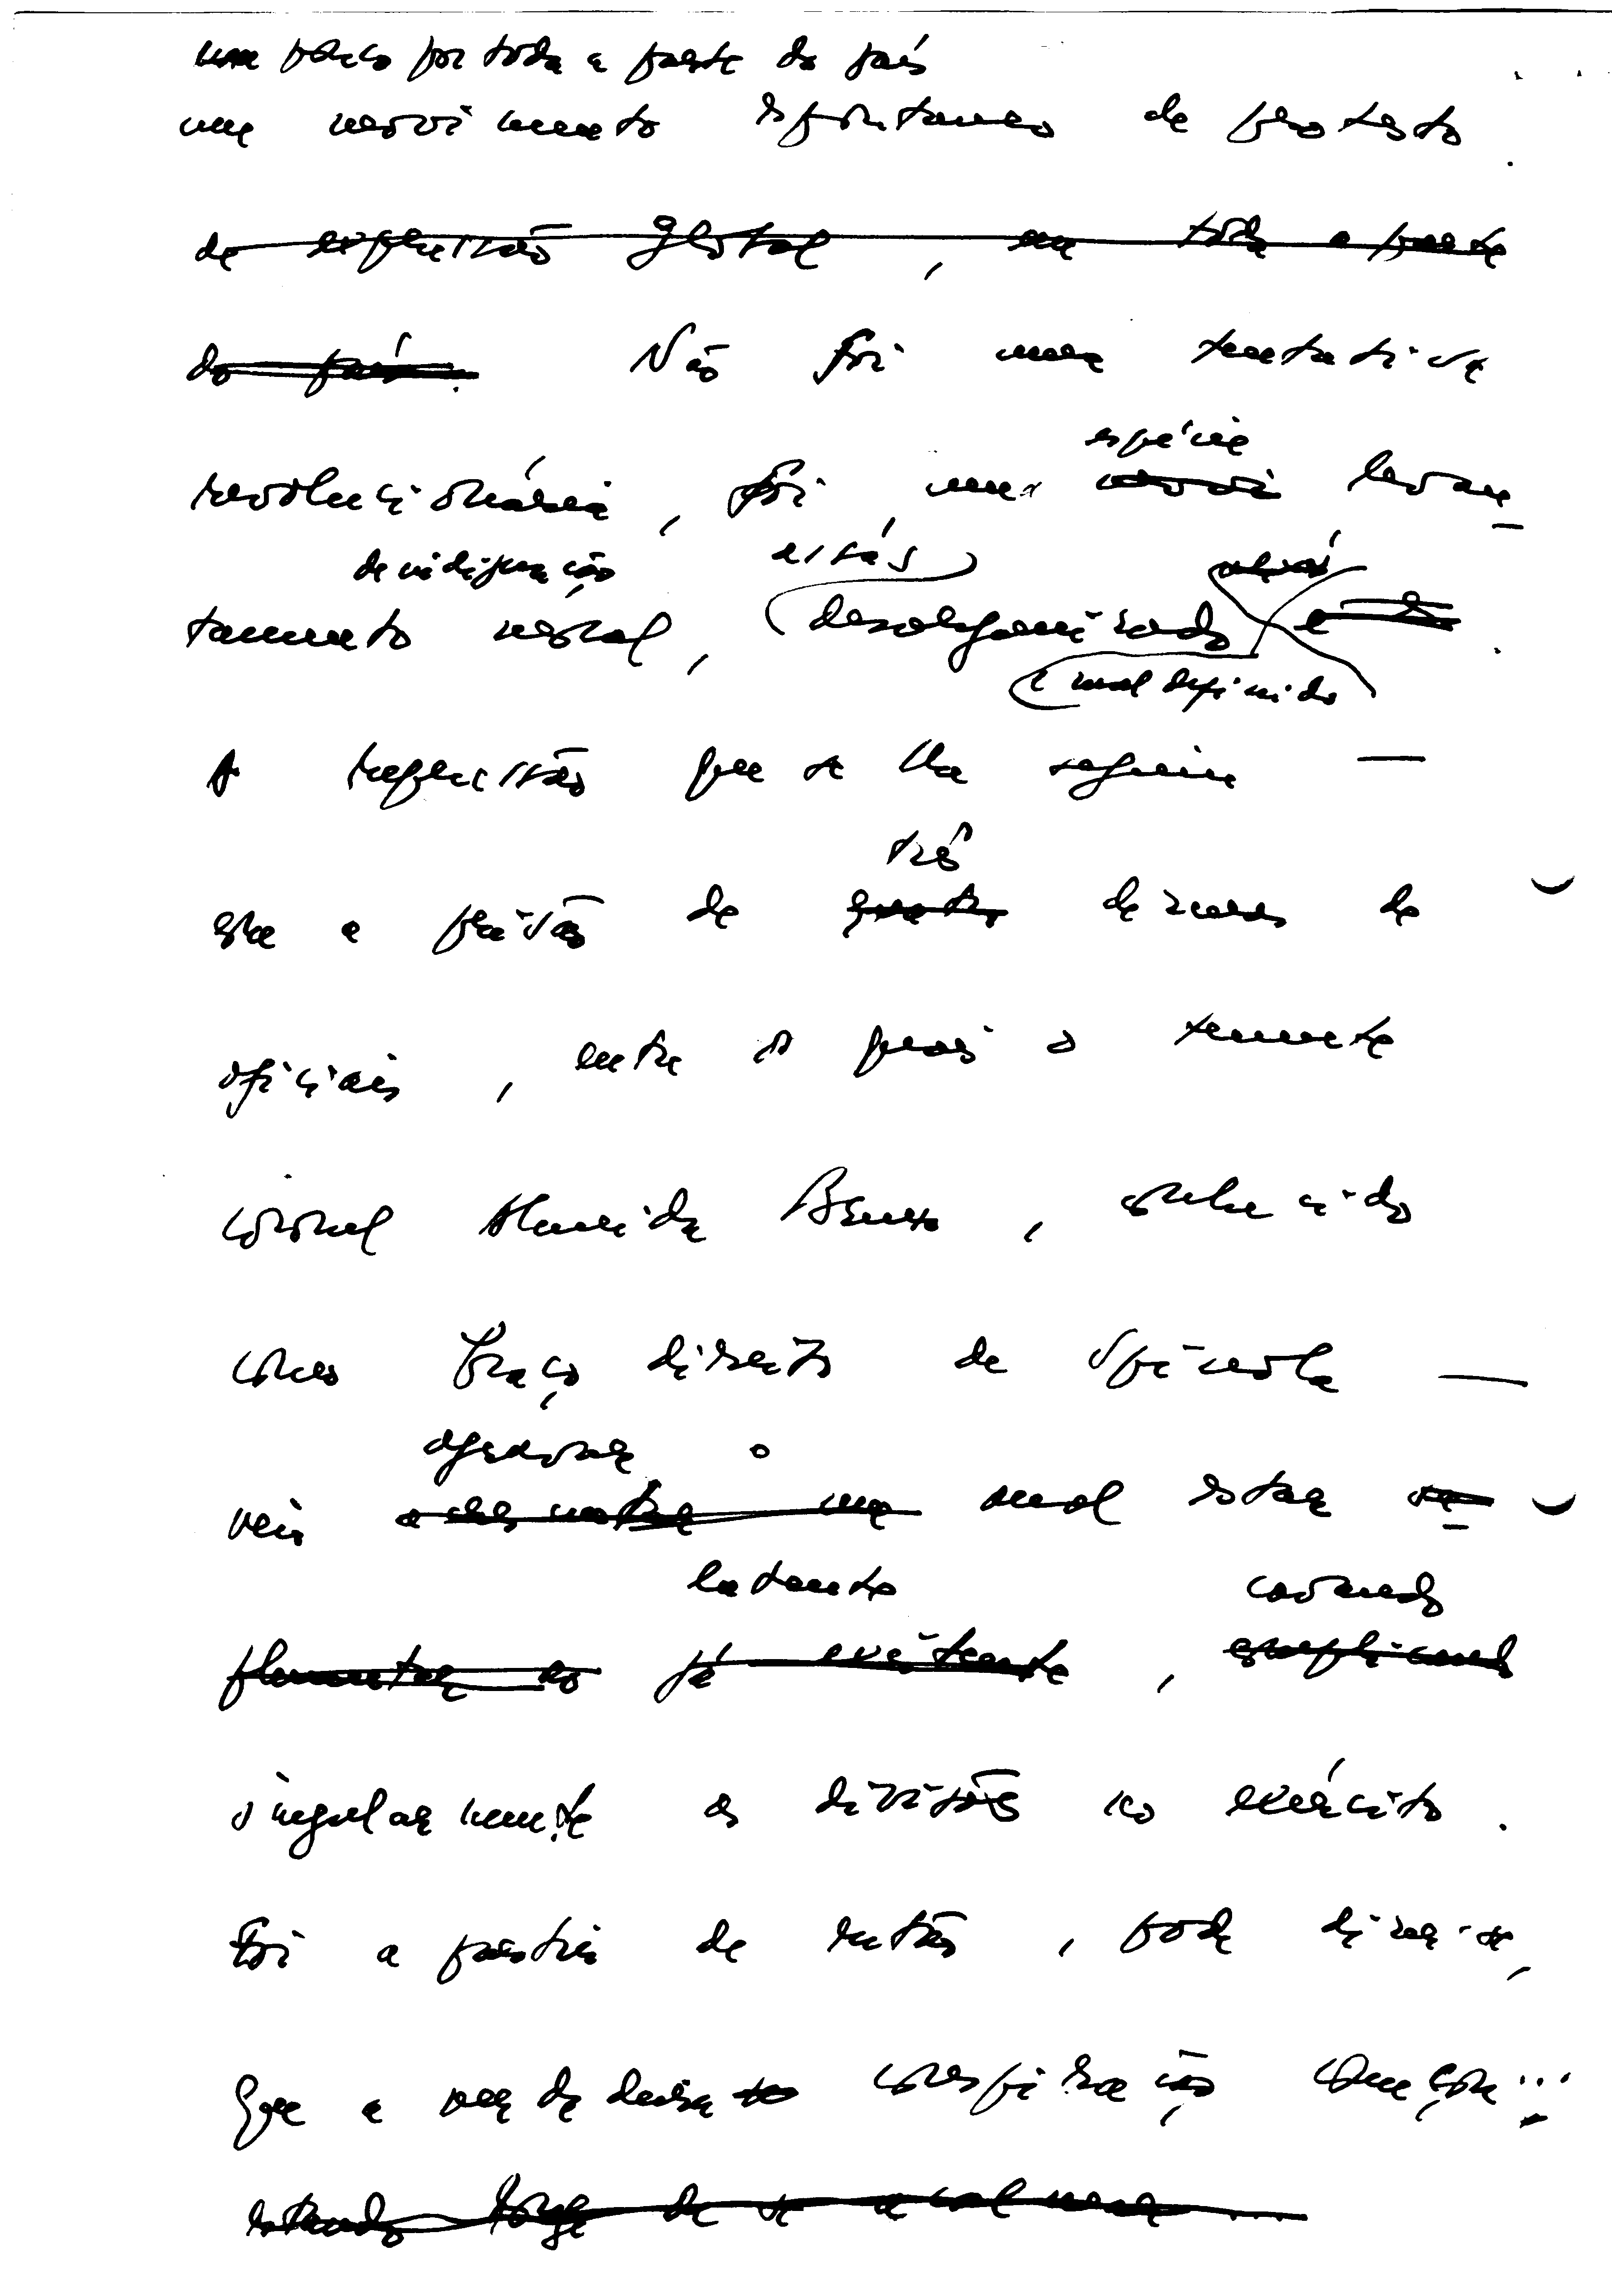 um pouco por toda a parte do país
um movimento espontaneo de protesto
de expressão global, em toda a parte
do país. Não foi uma tentativa
espécie
revolucionária, foi uma movi levan_
de indignação aliás
tamento moral, desorganizado e
e mal definido
A repressão que se lhe seguiu —
três
que a prisão de quatro dezenas de
oficiais, entre os quais o tenente
coronel Almeida Bruno, conhecido
como braço direito de Spínola —
agravar o
veio mal estar
latente cavando
já existente,
singularmente as divisões no exército.
Foi a partir de então, pode dizer-se,
que a verdadeira conspiração começou...
estando longe de se acalmar....